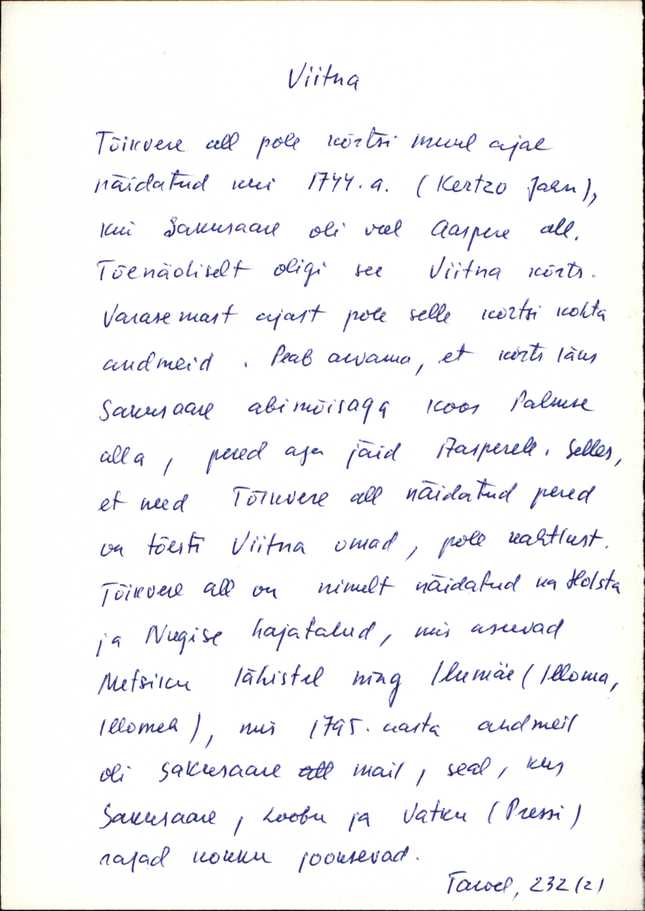 Viitna
Tõikvere all pole kõrtsi muul ajal
näidatud kui 1744.a. (Kertzo Jahn),
kui Sakusaare oli veel Aaspere all.
Tõenäoliselt oligi see Viitna kõrts.
Varasemast ajast pole selle kõrtsi kohta
andmeid. Peab arvama, et kõrts läks
Sakusaare abimõisaga koos Palmse
alla, pered aga jäid Aasperele. Selles,
et need Tõikvere all näidatud pered
on tõesti Viitna omad, pole kahtlust.
Tõikvere all on nimelt näidatud ka Holsta
ja Nugise hajatalud, mis asuvad
Metsiku lähistel ning Ilumäe (Illoma,
Illomeh), mis 1795. aasta andmeil
oli Sakusaare all mail, seal, kus
Sakusaare, Loobu ja Vatku (Pressi)
rajad kokku jooksevad.
232 (2)